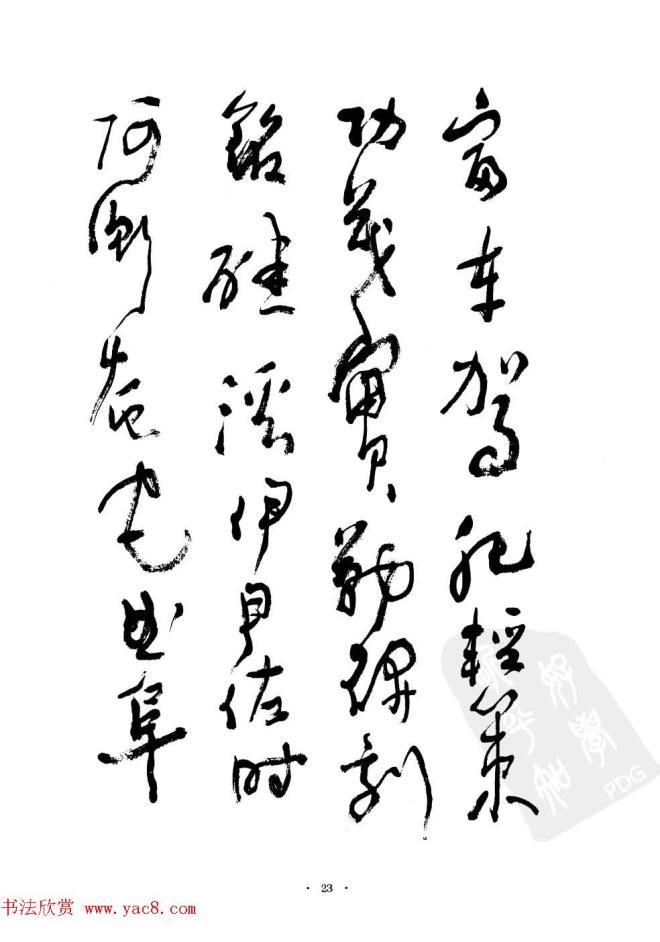 富车驾肥轻策
功茂实勒碑刻
銘磻溪伊尹佐时
阿衡奄宅曲阜
· 23 ·
书法欣赏 www.yac8.com
PDG